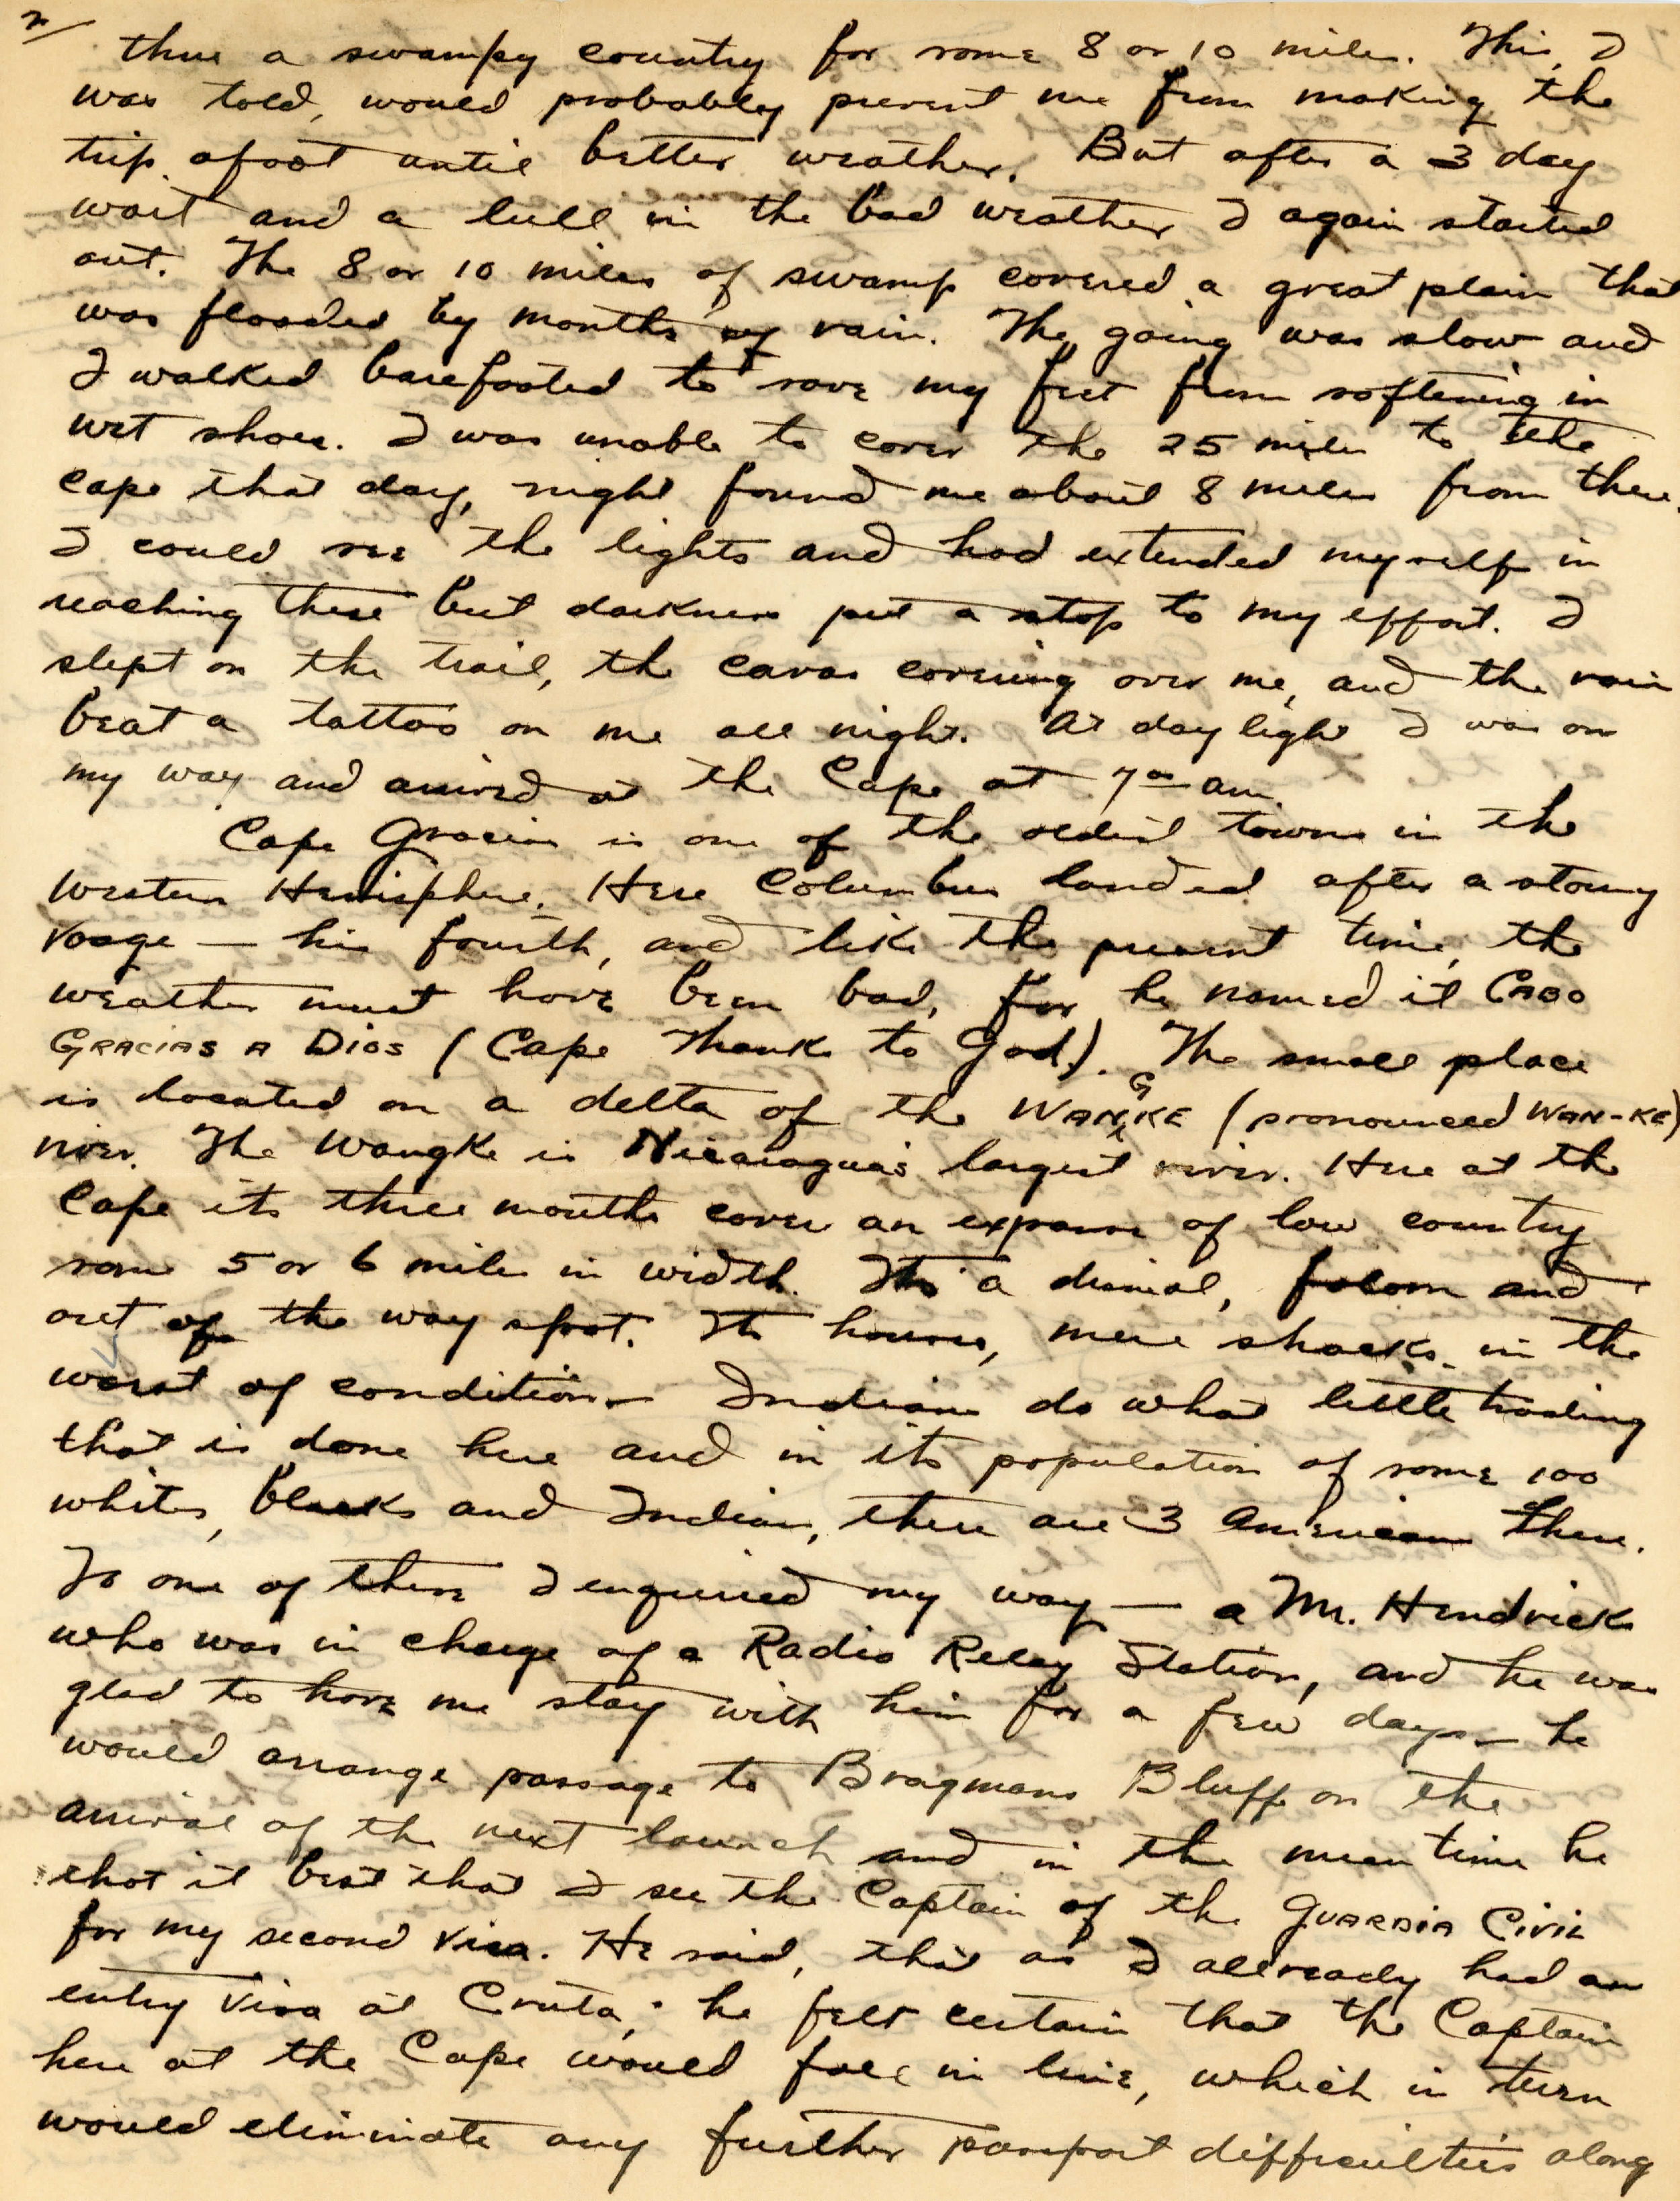 2/
thru a swampy country for some 8 or 10 miles. This, I
was told, would probably prevent me from making the
trip afoot until better weather. But after a 3 day
wait and a lull in the bad weather I again started
out. The 8 or 10 miles of swamp covered a great plain that
was flooded by months of rain. The going was slow and
I walked barefooted to save my feet from softening in
wet shoes. I was unable to cover the 25 miles to the
cape that day, night found me about 8 miles from there.
I could see the lights and had extended myself in
reaching there but darkness put a stop to my effort. I
slept on the trail, the canvas covering over me, and the rain
beat a tattoo on me all night. At day light I was on
my way and arrived at the Cape at 7 00 am.
Cape Gracias is one of the oldest towns in the
Western Hemisphere. Here Columbus landed after a stormy
Voage — his fourth, and like the present time, the
weather must have been bad, for he named it CABO
GRACIAS A DIOS (Cape Thanks to God). The small place
is located on a delta of the WANGKE (pronounced WAN-KE)
river. The Wangke is Nicaragua's largest river. Here at the
Cape its three mouths cover an expanse of low country
some 5 or 6 miles in width. Its a dismal, folorn and
out of the way spot. Its houses, mere shacks in the
worst of condition – Indians do what little trading
that is done here and in its population of some 100
whites, blacks and Indians, there are 3 Americans there.
To one of these I enquired my way — a Mr. Hendrick
who was in charge of a Radio Relay Station, and he was
glad to have me stay with him for a few days – he
would arrange passage to Bragmans Bluff on the
arrival of the next launch and in the mean time he
thot it best that I see the Captain of the GUARDIA CIVIL
for my second visa. He said, that as I allready had an
entry visa at Cruta, he felt certain that the Captain
here at the Cape would fall in line, which in turn
would eliminate any further passport difficulties along